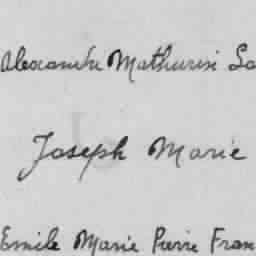 Alexandre Mathurin
Joseph Marie
Emile Marie Pierre Fran